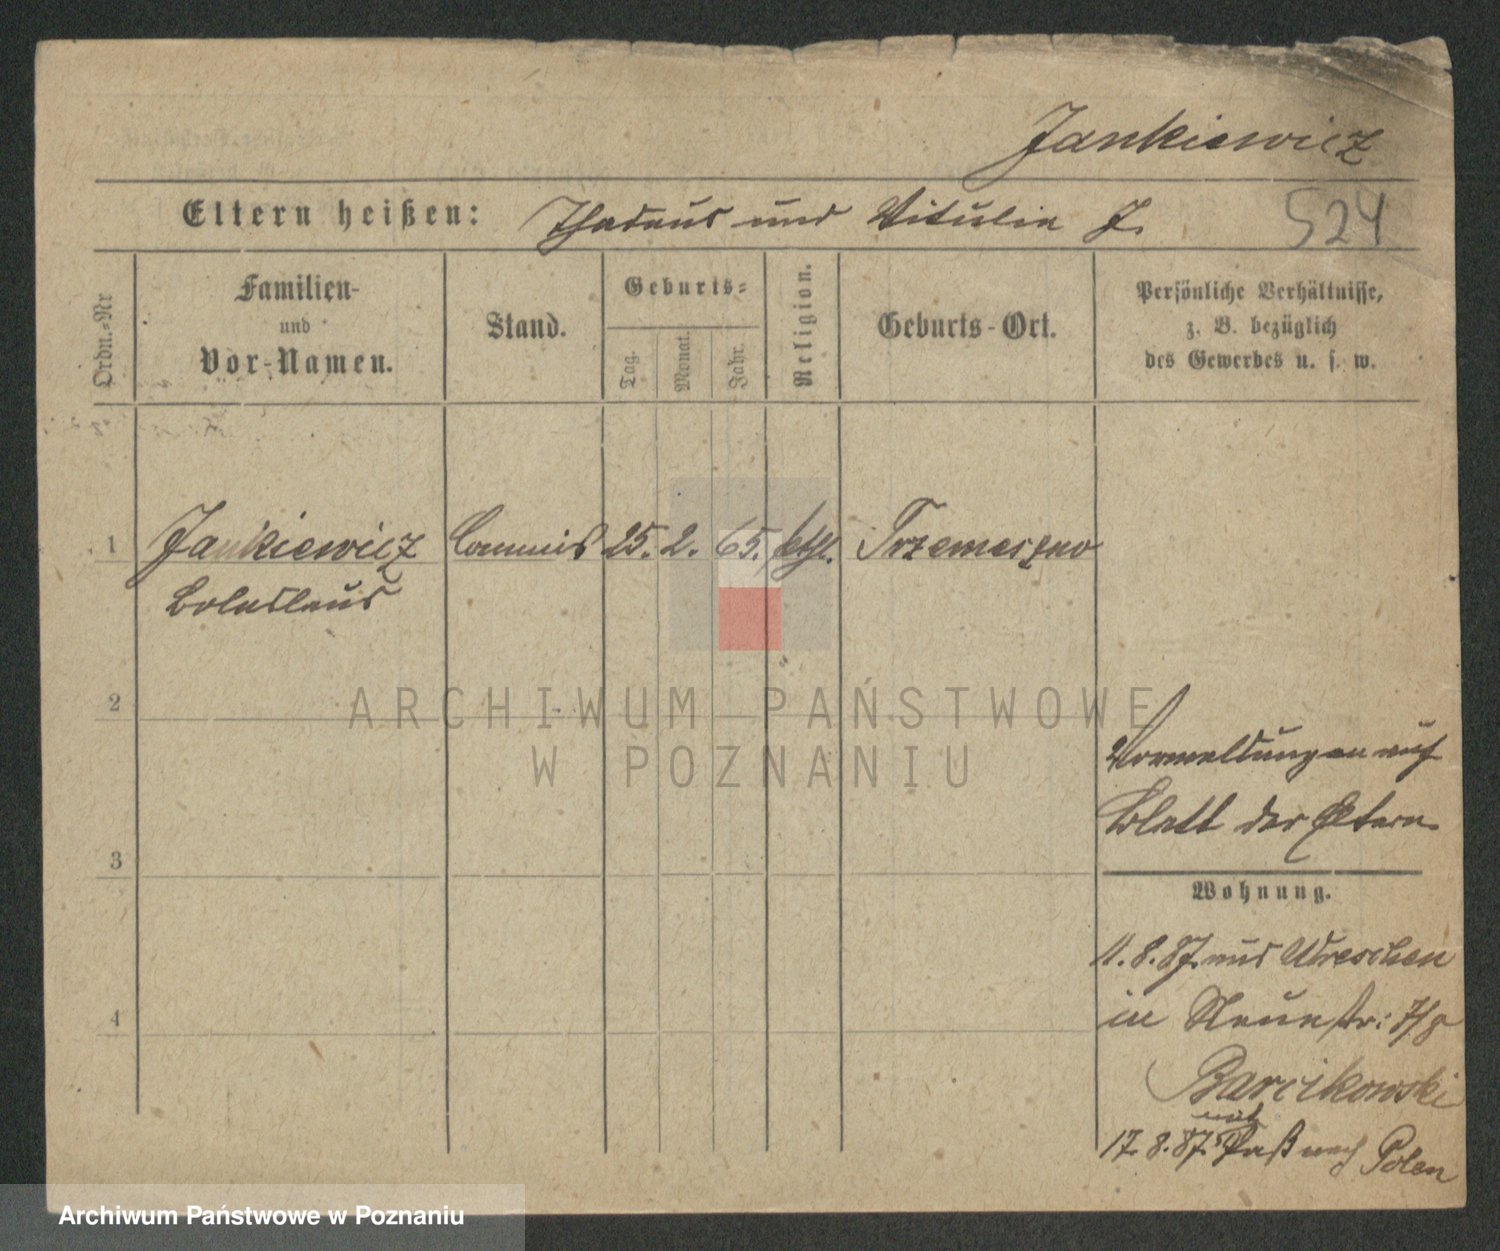 Jankiewicz
Eltern heißen: Thadeus und Vitulia J.
524
Ordn.-Nr
Familien-
und
Vor-Namen.
Stand.
Geburts-
Tag.
Monat.
Jahr.
Religion.
Geburts-Ort.
Persönliche Verhältnisse,
z. B. bezüglich
des Gewerbes u. s. w.
1 Jankiewicz Commis 25. 2. 65. ktgl. Trzemeszno
Boleslaus
2
ARCHIWUM PAŃSTWOWE
W POZNANIU
Vormeldungen auf
Blatt der Eltern
3
Wohnung.
11.8.87. aus Wreschen
in Neuestr: 7/8
4
Barcikowski
mit
17.8.87. Paß nach Polen
Archiwum Państwowe w Poznaniu